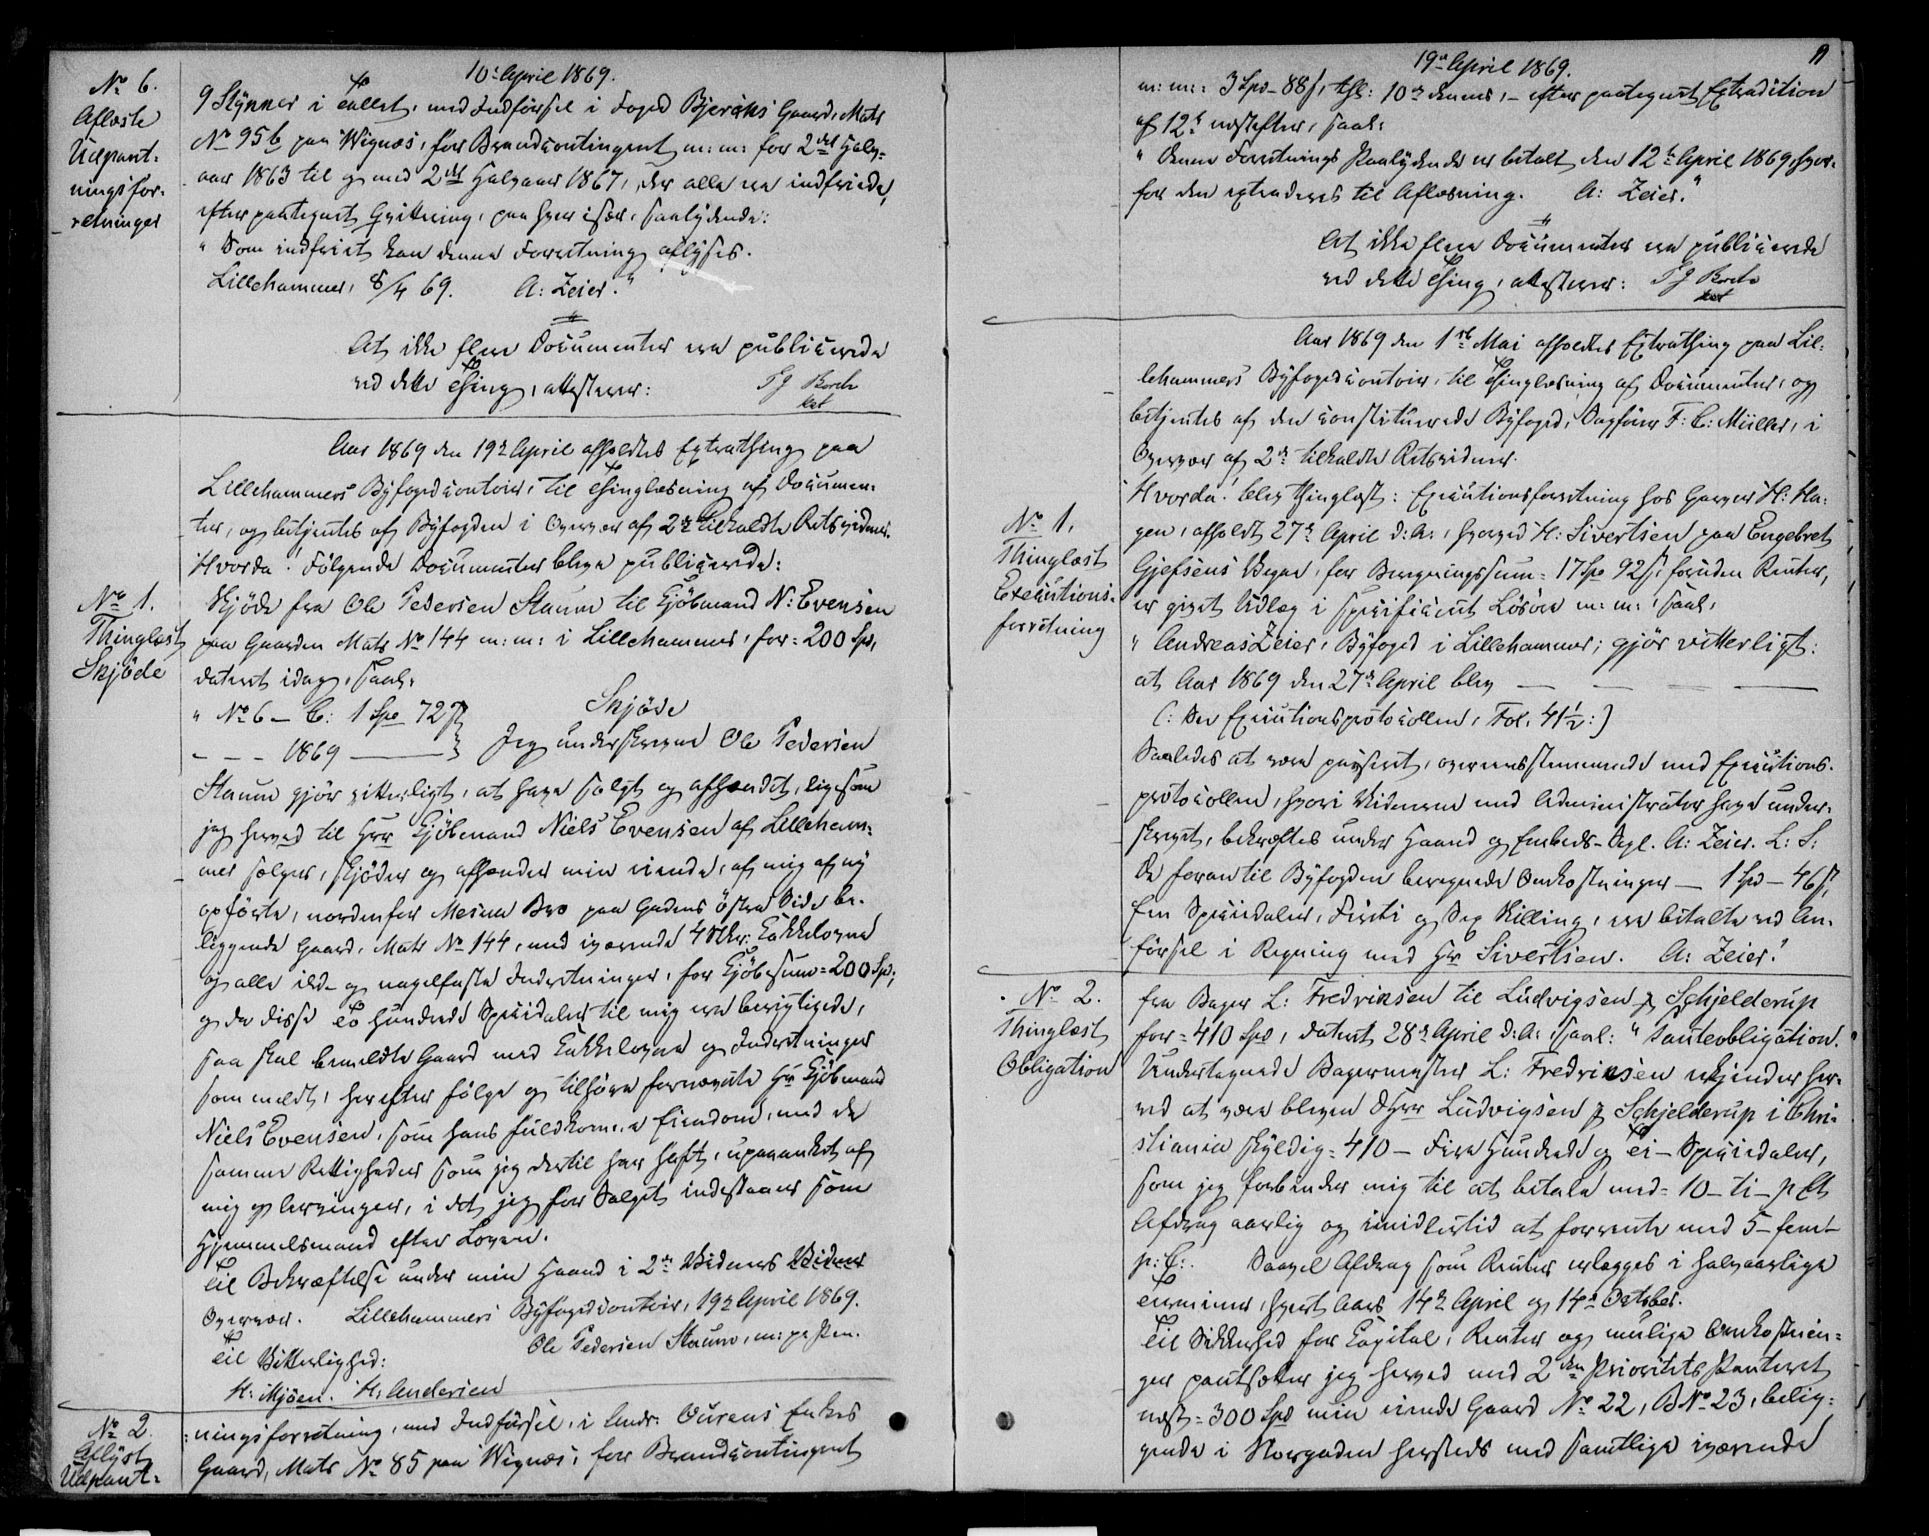 10de April 1869.
No 6.
Aflæste
Udpant-
ningsfor-
retninger
9 Stykker i Tallet, med Indførsel i Foged Bjerches Gaard, Matr
No 95b paa Wignæs, for Brandcontingent m: m: for 2det Halv-
aar 1863 til og med 2det Halvaar 1867, der alle ere indfriede,
efter paategnet Qvittering, paa hver især, saalydende:
"Som indfriet kan denne Forretning aflyses.
Lillehammer, 8/4 69. A: Zeier."
At ikke flere Documenter ere publicerede
ved dette Thing, attesterer: Borch
kst
Aar 1869 den 19de April afholdtes Extrathing paa
Lillehammers Byfogedcontoir, til Thinglæsning af Documen-
ter, og betjentes af Byfogden i Overvær af 2de tilkaldte Retsvidner.
Hvorda! Følgende Documenter bleve publicerede:
No 1.
Thinglæst
Skjöde
Skjöde fra Ole Pedersen Staum til Kjöbmand N: Evensen
paa Gaarden Matr No 144 m: m: i Lillehammer, for = 200 Spd,
dateret idag, saal:
" No 6 – C: 1 Spd 72 s
– – – 1869 ———
Skjöde
Jeg underskrevne Ole Pedersen
Staum gjör vitterligt, at have solgt og afhændet, ligesom
jeg herved til Herr Kjöbmand Niels Evensen af Lilleham-
mer sælger, skjöder og afhænder min eiende, af mig af ny
opförte, nordenfor Mesna Bro paa Gadens östre Side be-
liggende Gaard, Matr No 144, med iværende 4 Stkr: Kakkelovne
og alle ild- og nagelfaste Indretninger, for Kjöbesum = 200 Spd;
og da disse To Hundrede Speciedaler til mig ere berigtigede,
saa skal bemeldte Gaard med Kakkelovne og Indretninger
som meldt, herefter fölge og tilhöre fornævnte Hr Kjöbmand
Niels Evensen, som hans fuldkomne Eiendom, med de
samme Rettigheder som jeg dertil har haft, upaaanket af
mig og Arvinger, i det jeg for Salget indestaaer som
Hjemmelsmand efter Loven.
Til Bekræftelse under min Haand i 2de Vidners
Overvær. Lillehammers Byfogedcontoir, 19de April 1869.
Ole Pedersen Staum, m: p: Pen.
Til Vitterlighed:
H: Mjöen. H: Andersen
No 2.
Aflyst
Udpant-
ningsforretning, med Indförsel, i Andr: Ourens Enkes
Gaard, Matr No 85 paa Wignæs, for Brandcontingent
19de April 1869.
m: m: 3 Spd – 88 s, afh: 10de dennes, – efter paategnet Extradition
af 12te næstefter, saal:
"Denne Forretnings Paalydende er betalt den 12te April 1869, hvor-
for den extraderes til Aflæsning. A: Zeier."
At ikke flere Documenter ere publicerede
ved dette Thing, attesterer: Borch
kst
Aar 1869 den 1ste Mai afholdtes Extrathing paa Lil-
lehammers Byfogedcontoir, til Thinglæsning af Documenter, og
betjentes af den constituerede Byfoged, Sagförer F: C: Müller, i
Overvær af 2de tilkaldte Retsvidner.
No 1.
Thinglæst
Executions-
forretning
Hvorda! blev thinglæst: Executionsforretning hos Garver H: Ha-
gen, afholdt 27de April d: A:, hvorved H: Sivertsen paa Engebret
Gjefsens Vegne, for Beregningssum = 17 Spd 92 s, foruden Renter,
er givet Udlæg i specificeret Lösöre m: m:, saal:
"Andreas Zeier, Byfoged i Lillehammer; gjör vitterligt:
at Aar 1869 den 27de April blev — — — —
(: See Executionsprotocollen, Fol. 41½ :)
Saaledes at være passeret, overensstemmende med Executions-
protocollen, hvori Vidnerne med Administrator have under-
skrevet, bekræftes under Haand og Embeds-Segl. A: Zeier. L: S:
De foran til Byfogden beregnede Omkostninger — 1 Spd – 46 s,
Een Speciedaler, Firti og Sex Skilling, ere betalte ved An-
försel i Regning med Hr Sivertsen. A: Zeier."
No 2.
Thinglæst
Obligation
fra Bager L: Fredriksen til Ludvigsen & Schjelderup
for = 410 Spd, dateret 28de April d: A: saal: "Panteobligation.
Undertegnede Bagermester L: Fredriksen erkjender her-
ved at være bleven DHrr Ludvigsen & Schjelderup i Chri-
stiania skyldig = 410 – Fire Hundrede og Ti – Speciedaler,
som jeg forbinder mig til at betale med = 10 – ti – p Ct
Afdrag aarlig og imidlertid at forrente med 5 – fem –
p: C:. Saavel Afdrag som Renter erlægges i halvaarlige
Terminer, hvert Aars 14de April og 14de October.
Til Sikkerhed for Capital, Renter og mulige Omkostnin-
ger pantsætter jeg herved med 2den Prioritets Panteret
næst = 300 Spd min eiende Gaard No 22, B No 23, belig-
gende i Storgaden hersteds med samtlige iværende